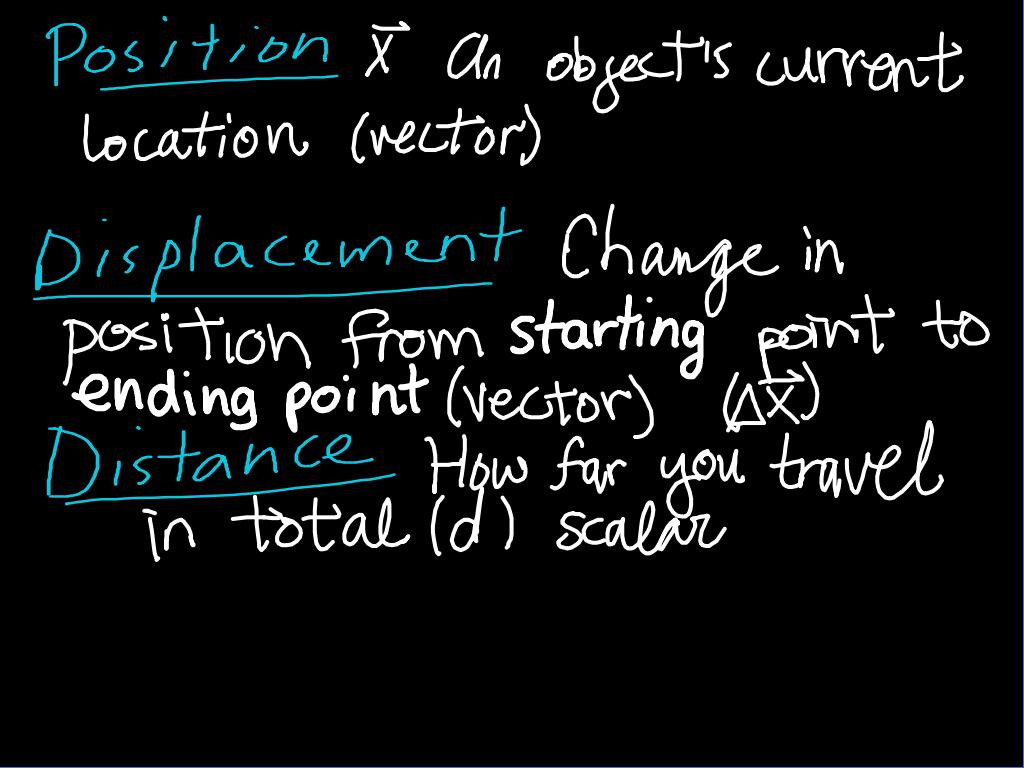 Position x⃗ An object's current
location (vector)
Displacement Change in
position from starting point to
ending point (vector) (Δx⃗)
Distance How far you travel
in total (d) scalar